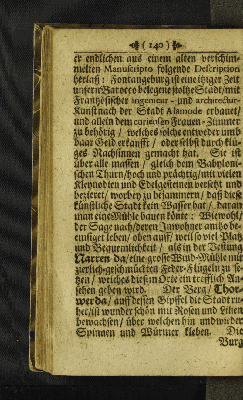 ( 140 )
er endlichen aus einem alten verschim-
melten Manuscripto folgende Description
herlaß: Fontangeburg ist eine itziger Zeit
unfern Baroeco belegene stoltze Stadt/mit
Frantzösischer ingenieur- und architectur-
Kunst nach der Stadt Alamode erbauet/
und allein dem curieusen Frauen-Zimmer
zu behörig/ welches solche entweder umb
baar Geld erkaufft/ oder selbst durch klu-
ges Nachsinnen gemacht hat. Sie ist
über alle massen/ gleich dem Babyloni-
schen Thurn/hoch und prächtig/mit vielen
Kleynodien und Edelgesteinen versetzt und
bezieret/ worbey zu bejammern/ daß diese
künstliche Stadt kein Wasser hat/ daran
man eine Mühle bauen könte: Wiewohl/
der Sage nach/deren Inwohner anitzo be-
müssiget leben/ oben auff/ weil so viel Platz
und Bequemlichkeit/ als in der Vestung
Narren da/eine grosse Wind-Mühle mit
zierlich-geschmückten Feder-Flügeln zu se-
tzen/ welches diesen Orte ein trefflich An-
sehen geben wird. Der Berg/ Thor-
werda/ auff dessen Gipffel die Stadt ru-
het/ist wunder schön mit Rosen und Lilien
bewachsen/ über welchen hin und wieder
Spinnen und Würmer kleben. Die
Burg